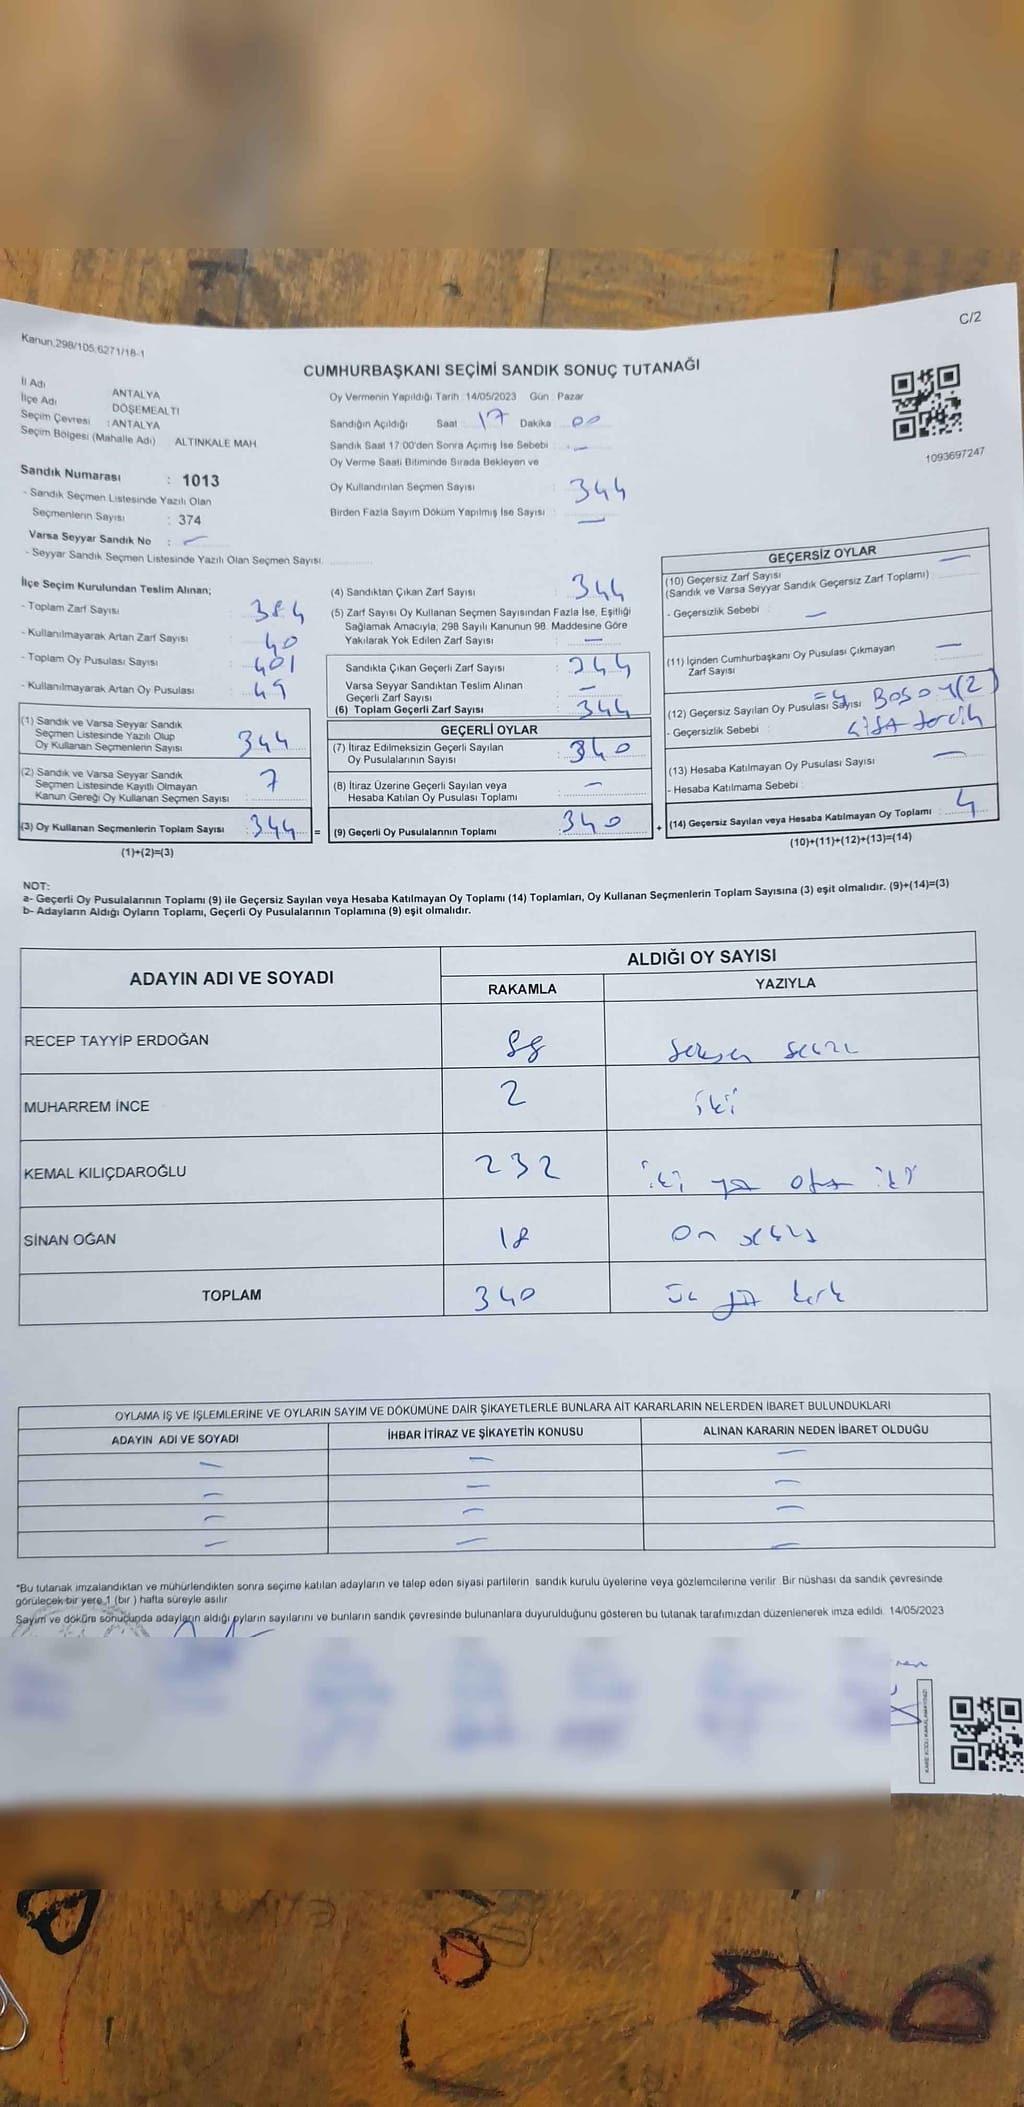 C/2
Kanun,298/105,6271/18-1
CUMHURBAŞKANI SEÇİMİ SANDIK SONUÇ TUTANAĞI
1093697247
İl Adı ANTALYA
İlçe Adı DÖŞEMEALTI
Seçim Çevresi : ANTALYA
Seçim Bölgesi (Mahalle Adı) ALTINKALE MAH.
Oy Vermenin Yapıldığı Tarih :14/05/2023 Gün : Pazar
Sandığın Açıldığı Saat : 17 Dakika : 00
Sandık Saat 17:00'den Sonra Açımış İse Sebebi : —
Oy Verme Saati Bitiminde Sırada Bekleyen ve
Oy Kullandırılan Seçmen Sayısı : 344
Birden Fazla Sayım Döküm Yapılmış İse Sayısı : —
Sandık Numarası : 1013
- Sandık Seçmen Listesinde Yazılı Olan
Seçmenlerin Sayısı : 374
Varsa Seyyar Sandık No : —
- Seyyar Sandık Seçmen Listesinde Yazılı Olan Seçmen Sayısı:
İlçe Seçim Kurulundan Teslim Alınan;
- Toplam Zarf Sayısı : 384
- Kullanılmayarak Artan Zarf Sayısı : 40
- Toplam Oy Pusulası Sayısı : 401
- Kullanılmayarak Artan Oy Pusulası : 49
(1) Sandık ve Varsa Seyyar Sandık
Seçmen Listesinde Yazılı Olup
Oy Kullanan Seçmenlerin Sayısı : 344
(2) Sandık ve Varsa Seyyar Sandık
Seçmen Listesinde Kayıtlı Olmayan
Kanun Gereği Oy Kullanan Seçmen Sayısı : 7
(3) Oy Kullanan Seçmenlerin Toplam Sayısı : 344 =
(1)+(2)=(3)
(4) Sandıktan Çıkan Zarf Sayısı : 344
(5) Zarf Sayısı Oy Kullanan Seçmen Sayısından Fazla İse, Eşitliği
Sağlamak Amacıyla, 298 Sayılı Kanunun 98. Maddesine Göre
Yakılarak Yok Edilen Zarf Sayısı : —
Sandıkta Çıkan Geçerli Zarf Sayısı : 244
Varsa Seyyar Sandıktan Teslim Alınan
Geçerli Zarf Sayısı : —
(6) Toplam Geçerli Zarf Sayısı : 344
GEÇERLİ OYLAR
(7) İtiraz Edilmeksizin Geçerli Sayılan
Oy Pusulalarının Sayısı : 340
(8) İtiraz Üzerine Geçerli Sayılan veya
Hesaba Katılan Oy Pusulası Toplamı : —
(9) Geçerli Oy Pusulalarının Toplamı : 340 +
GEÇERSİZ OYLAR
(10) Geçersiz Zarf Sayısı —
(Sandık ve Varsa Seyyar Sandık Geçersiz Zarf Toplamı) :
- Geçersizlik Sebebi : —
(11) İçinden Cumhurbaşkanı Oy Pusulası Çıkmayan
Zarf Sayısı : —
(12) Geçersiz Sayılan Oy Pusulası Sayısı =4 BOŞ OY(2)
- Geçersizlik Sebebi : Çift tercih
(13) Hesaba Katılmayan Oy Pusulası Sayısı : —
- Hesaba Katılmama Sebebi :
(14) Geçersiz Sayılan veya Hesaba Katılmayan Oy Toplamı : 4
(10)+(11)+(12)+(13)=(14)
NOT:
a- Geçerli Oy Pusulalarının Toplamı (9) ile Geçersiz Sayılan veya Hesaba Katılmayan Oy Toplamı (14) Toplamları, Oy Kullanan Seçmenlerin Toplam Sayısına (3) eşit olmalıdır. (9)+(14)=(3)
b- Adayların Aldığı Oyların Toplamı, Geçerli Oy Pusulalarının Toplamına (9) eşit olmalıdır.
ADAYIN ADI VE SOYADI ALDIĞI OY SAYISI
RAKAMLA YAZIYLA
RECEP TAYYİP ERDOĞAN 88 Seksen sekiz
MUHARREM İNCE 2 iki
KEMAL KILIÇDAROĞLU 232 iki yüz otuz iki
SİNAN OĞAN 18 On sekiz
TOPLAM 340 Üç yüz kırk
OYLAMA İŞ VE İŞLEMLERİNE VE OYLARIN SAYIM VE DÖKÜMÜNE DAİR ŞİKAYETLERLE BUNLARA AİT KARARLARIN NELERDEN İBARET BULUNDUKLARI
ADAYIN ADI VE SOYADI İHBAR İTİRAZ VE ŞİKAYETİN KONUSU ALINAN KARARIN NEDEN İBARET OLDUĞU
— — —
— — —
— — —
— — —
*Bu tutanak imzalandıktan ve mühürlendikten sonra seçime katılan adayların ve talep eden siyasi partilerin sandık kurulu üyelerine veya gözlemcilerine verilir. Bir nüshası da sandık çevresinde
görülecek bir yere 1 (bir ) hafta süreyle asılır.
Sayım ve döküm sonucunda adayların aldığı oyların sayılarını ve bunların sandık çevresinde bulunanlara duyurulduğunu gösteren bu tutanak tarafımızdan düzenlenerek imza edildi. 14/05/2023